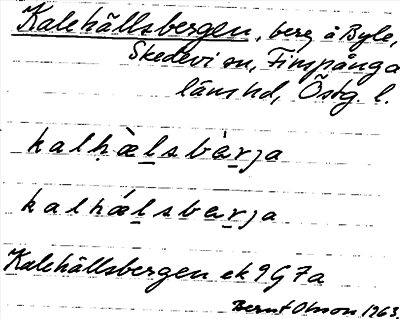 Kalehällsbergen, berg å Byle,
Skedevi sn, Finspånga
läns hd, Östg. l.
kalhæ̀lsbæ̀rja
kalhǽlsbærja
Kalehällsbergen ek 9G 7a
Bernt Olsson 1963.